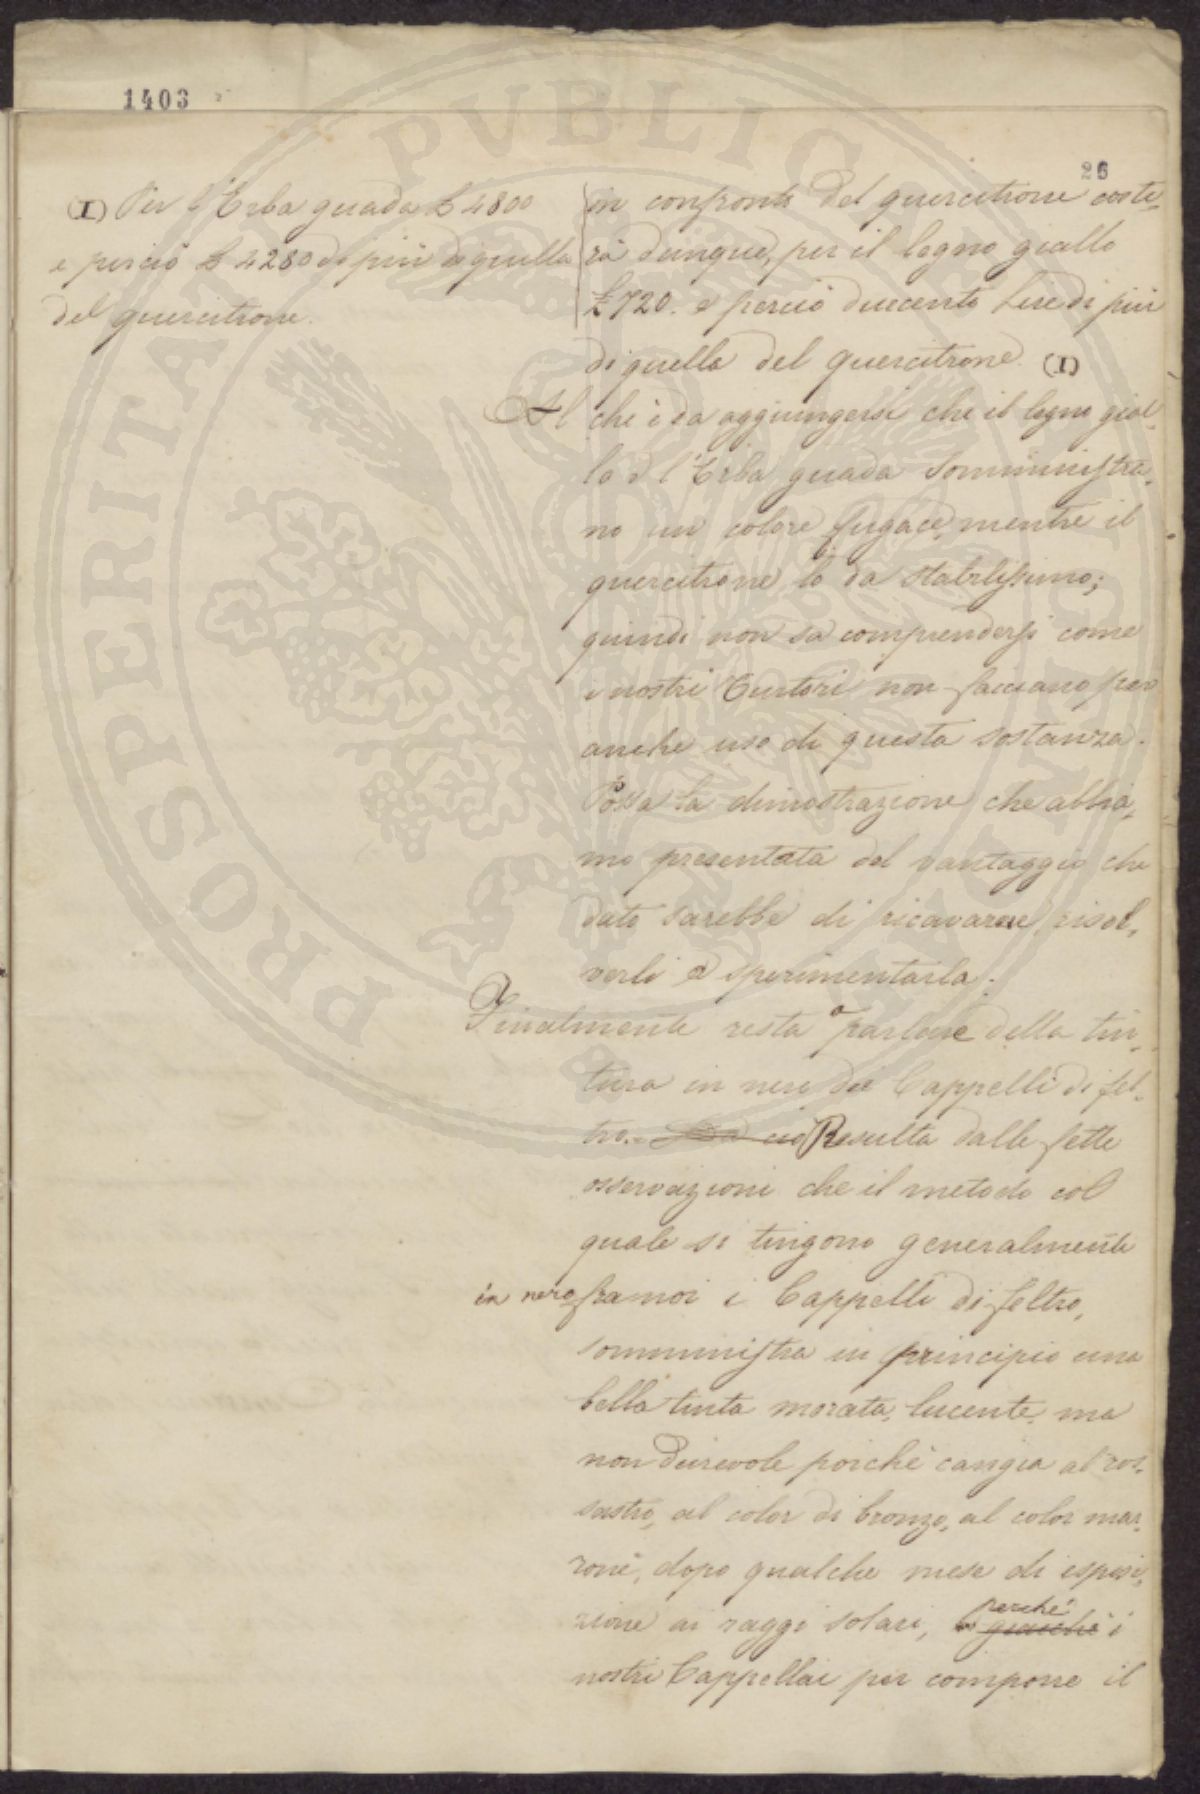 1403
26
(I) Per l'Erba guada £ 4800
e perciò £ 4280 di più di quella
del quercitrone.
in confronto del quercitrone coste,
rà dunque, per il legno giallo
£ 720. e perciò duecento Lire di più
di quella del quercitrone. (I)
Al che è da aggiungersi che il legno gial,
lo e l'Erba guada somministra,
no un colore fugace, mentre il
quercitrone lo da stabilissimo;
quindi non sa comprendersi come
i nostri Tintori non facciano per
anche uso di questa sostanza.
Possa la dimostrazione che abbia,
mo presentata del vantaggio che
dato sarebbe di ricavarne, risol,
verli a sperimentarla.
Finalmente resta a parlare della tin,
tura in nero dei Cappelli di fel,
tro. Da ciò Resulta dalle fatte
osservazioni che il metodo col
quale si tingono generalmente
in nero fra noi i Cappelli di feltro,
somministra in principio una
bella tinta morata, lucente, ma
non durevole poichè cangia al ros,
sastro, al color di bronzo, al color mar,
rone, dopo qualche mese di esposi,
zione ai raggi solari, perchè giacchè i
nostri Cappellai per comporre il
PROSPERITATI PUBLICAE